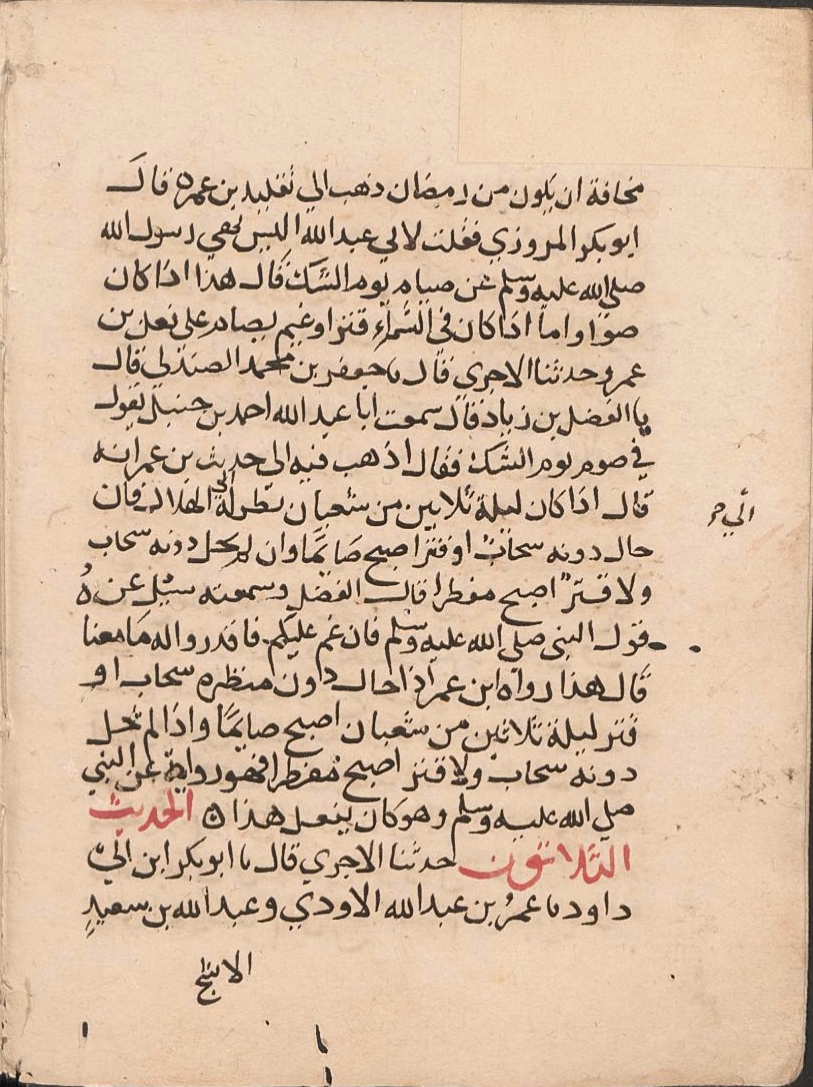 مخافة ان يكون من رمضان ذهب الي تقليد بن عمر ه قال
ابو بكر المروزي فقلت لابي عبد الله اليس نهي رسول الله
صلي الله عليه وسلم عن صيام يوم الشك قال هذا اذا كان
صوا واما اذا كان في السماء قتر او غيم يصام علي فعل بن
عمر وحدثنا الاجري قال نا جعفر بن محمد الصندلي قال
نا الفضل بن زياد قال سمعت ابا عبد الله احمد بن حنبل يقول
في صوم يوم الشك فقال اذهب فيه الي حديث بن عمر انه
قال اذا كان ليلة ثلاثين من شعبان نظر له الي الهلال فان
حال دونه سحاب او قتر اصبح صائما وان لم يحل دونه سحاب
ولا قتر اصبح مفطرا قال الفضل وسمعته سيل عن
قول النبي صلي الله عليه وسلم فان غم عليكم فاقدروا له ما معنا
قال هذا رواه ابن عمر اذا حال داون منظره سحاب او
قتر ليلة ثلاثين من شعبان اصبح صايما واذا لم تحل
دونه سحاب ولا قتر اصبح مفطرا فهو رواية عن النبي
صلي الله عليه وسلم وهو كان يفعل هذا ه الحديث
الثلاثون حدثنا الاجري قال نا ابو بكر ابن ابي
داود نا عمر بن عبد الله الاودي وعبد الله بن سعيد
الاشج
الي